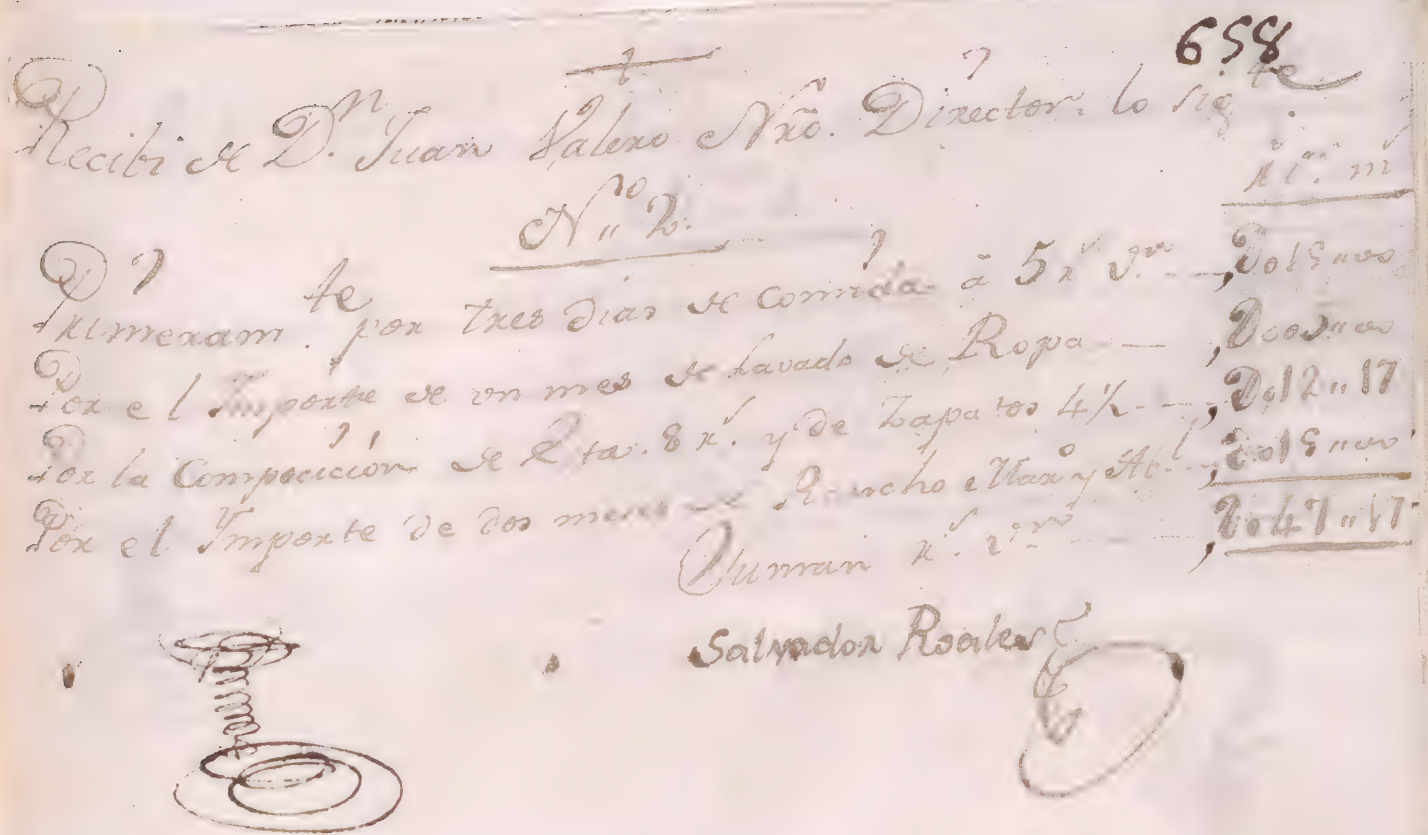 658
Recibi de D.n Juan Valero Nrõ. Director lo sig.te
r.s v.n m.s
N.o 2.
Primeram.te por tres dias de comida â 5 r.s v.n — D015"00
Por el Importe de vn mes de Lavado de Ropa — D005"00
Por la Compocición de 8 r.s y de Zapatos 4½ — D012"17
Por el Importe de dos meses de Rancho Marzo y Ab.l — D015"00
Suman r.s v.n — D047"17
Salvador Roales